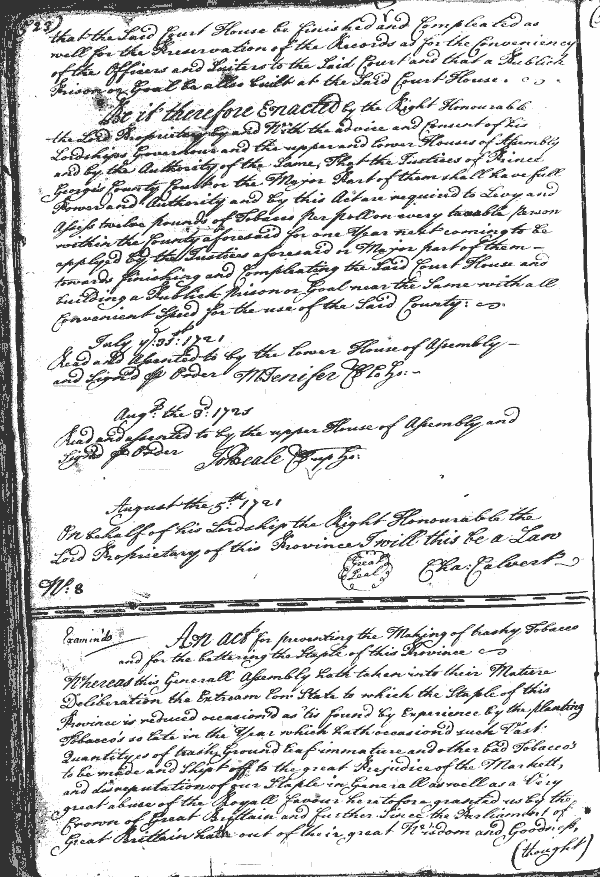 22)
that the Said Court House be finished and Compleated as
well for the Preservation of the Records as for the Conveniency
of the Officers and Suiters to the Said Court and that a Publick
Prison or Goal be allso built at the Said Court House.
Be it therefore Enacted by the Right Honourable
the Lord Proprietary by and With the advice and Consent of his
Lordships Governour and the upper and lower Houses of Assembly
and by the Authority of the Same, That the Justices of Prince
Georges County Court or the Major Part of them shall have full
Power and Authority and by this Act are required to Levy and
Assess twelve pounds of Tobacco per poll on every taxable person
within the County aforesaid for one Year next coming to be
applyed by the Justices aforesaid or Major part of them
towards finishing and Compleating the Said Court House and
building a Publick Prison or Goal near the Same with all
Convenient Speed for the use of the Said County:
July ye 31st 1721
Read and Assented to by the lower House of Assembly
and Signd p Order MJenifer Cl lo. ho:
Augst the 3d 1721
Read and assented to by the upper House of Assembly and
Signd p Order JoBeale Cl up ho:
August the 5th 1721
On behalf of his Lordship the Right Honourable the
Lord Proprietary of this Province I will this be a Law
Great Seal
Cha: Calvert
No. 8
Examind
An Act for preventing the Making of trashy Tobacco
and for the bettering the Staple of this Province
Whereas this Generall Assembly hath taken into their Mature
Deliberation the Extream low State to which the Staple of this
Province is reduced occasiond as tis found by Experience by the planting
Tobacco's so late in the Year which hath occasiond such Vast
Quantityes of trashy Ground leaf immature and other bad Tobacco's
to be made and Shipt off to the great Prejudice of the Markett,
and disreputation of our Staple in Generall as well as a Very
great abuse of the Royall favour heretofore granted us by the
Crown of Great Brittain and further Since the Parliament of
Great Brittain hath out of their great Wisdom and Goodness,
(thought)